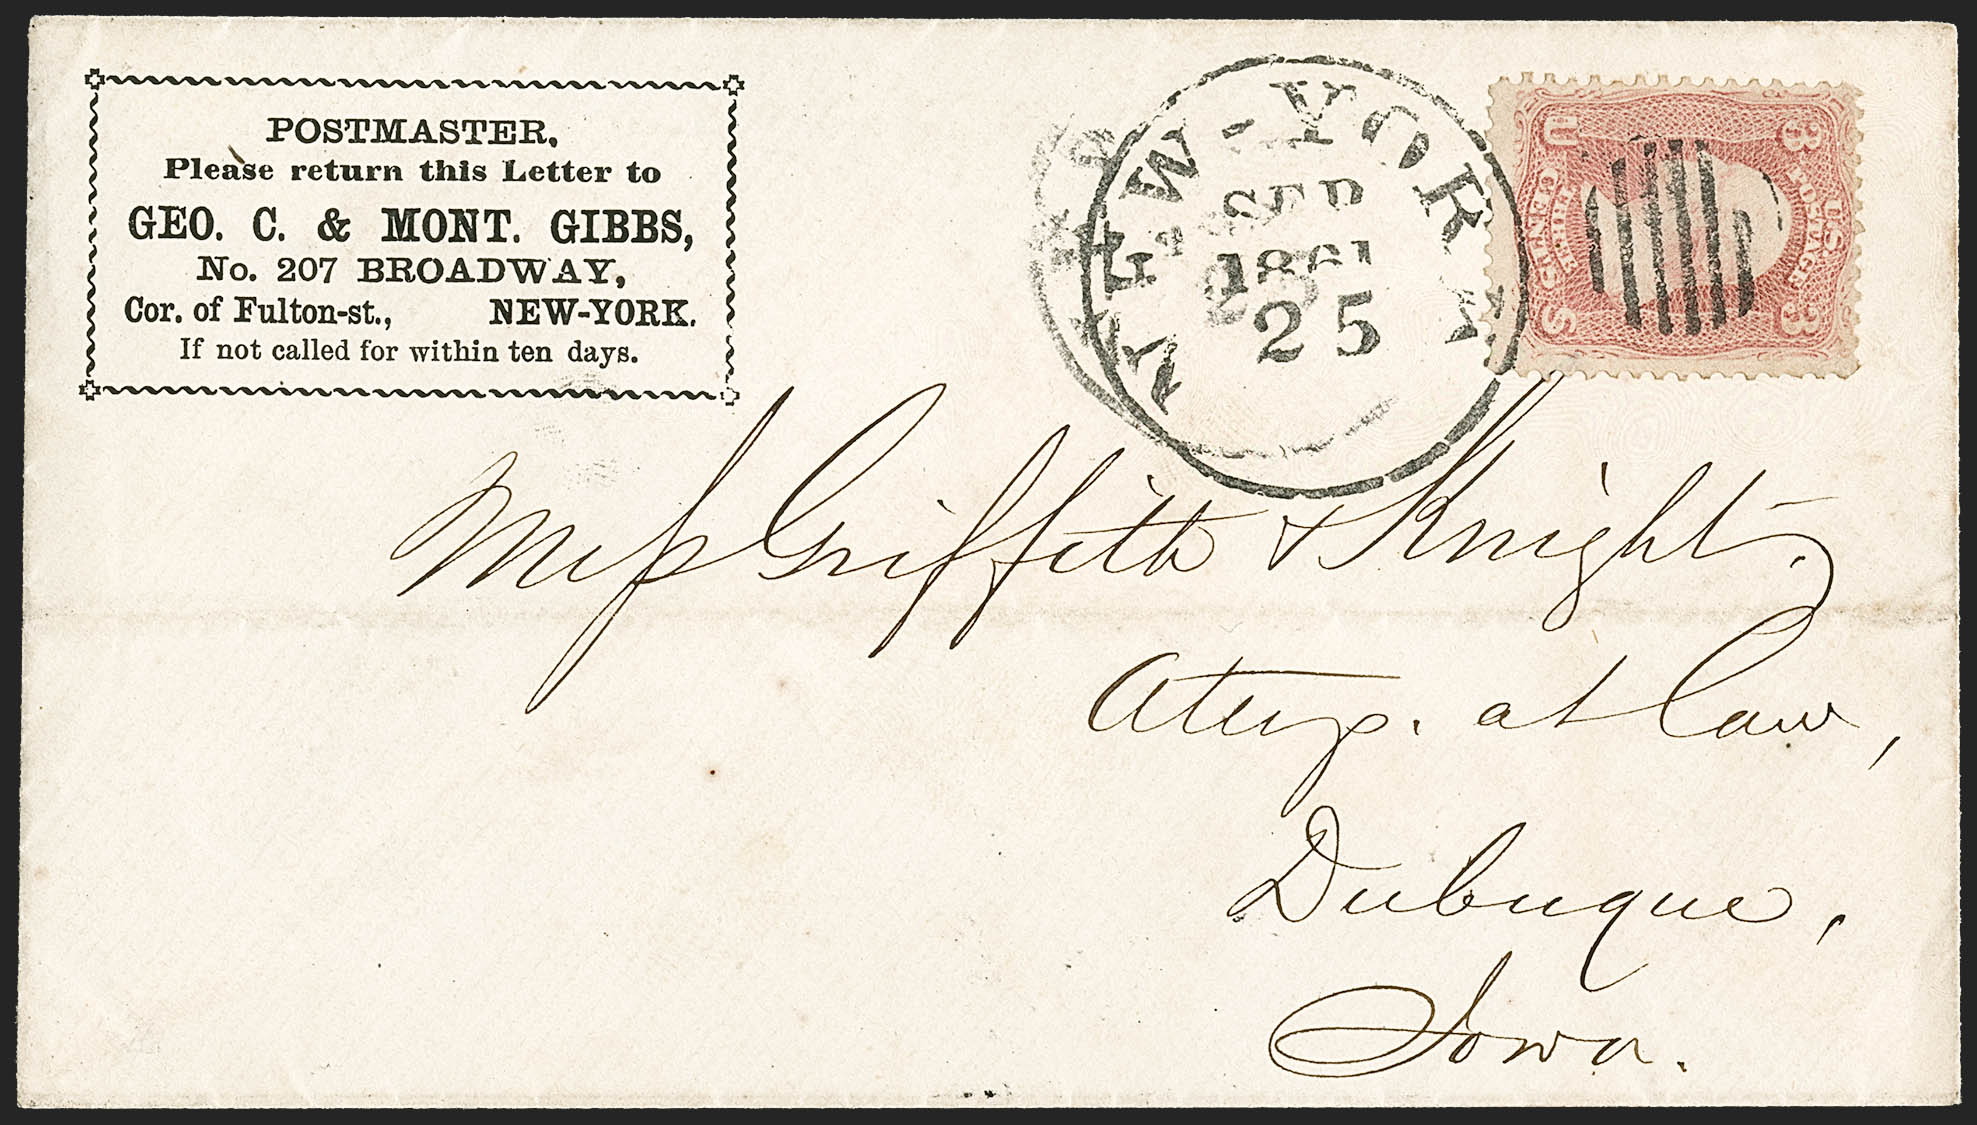 POSTMASTER,
Please return this Letter to
GEO. C. & MONT. GIBBS,
No. 207 BROADWAY,
Cor. of Fulton-st., NEW-YORK.
If not called for within ten days.
NEW-YORK
SEP
1861
25
U 3
THREE CENTS
U.S. POSTAGE
S 3
Mess Griffith & Knight,
Attys. at Law,
Dubuque,
Iowa.